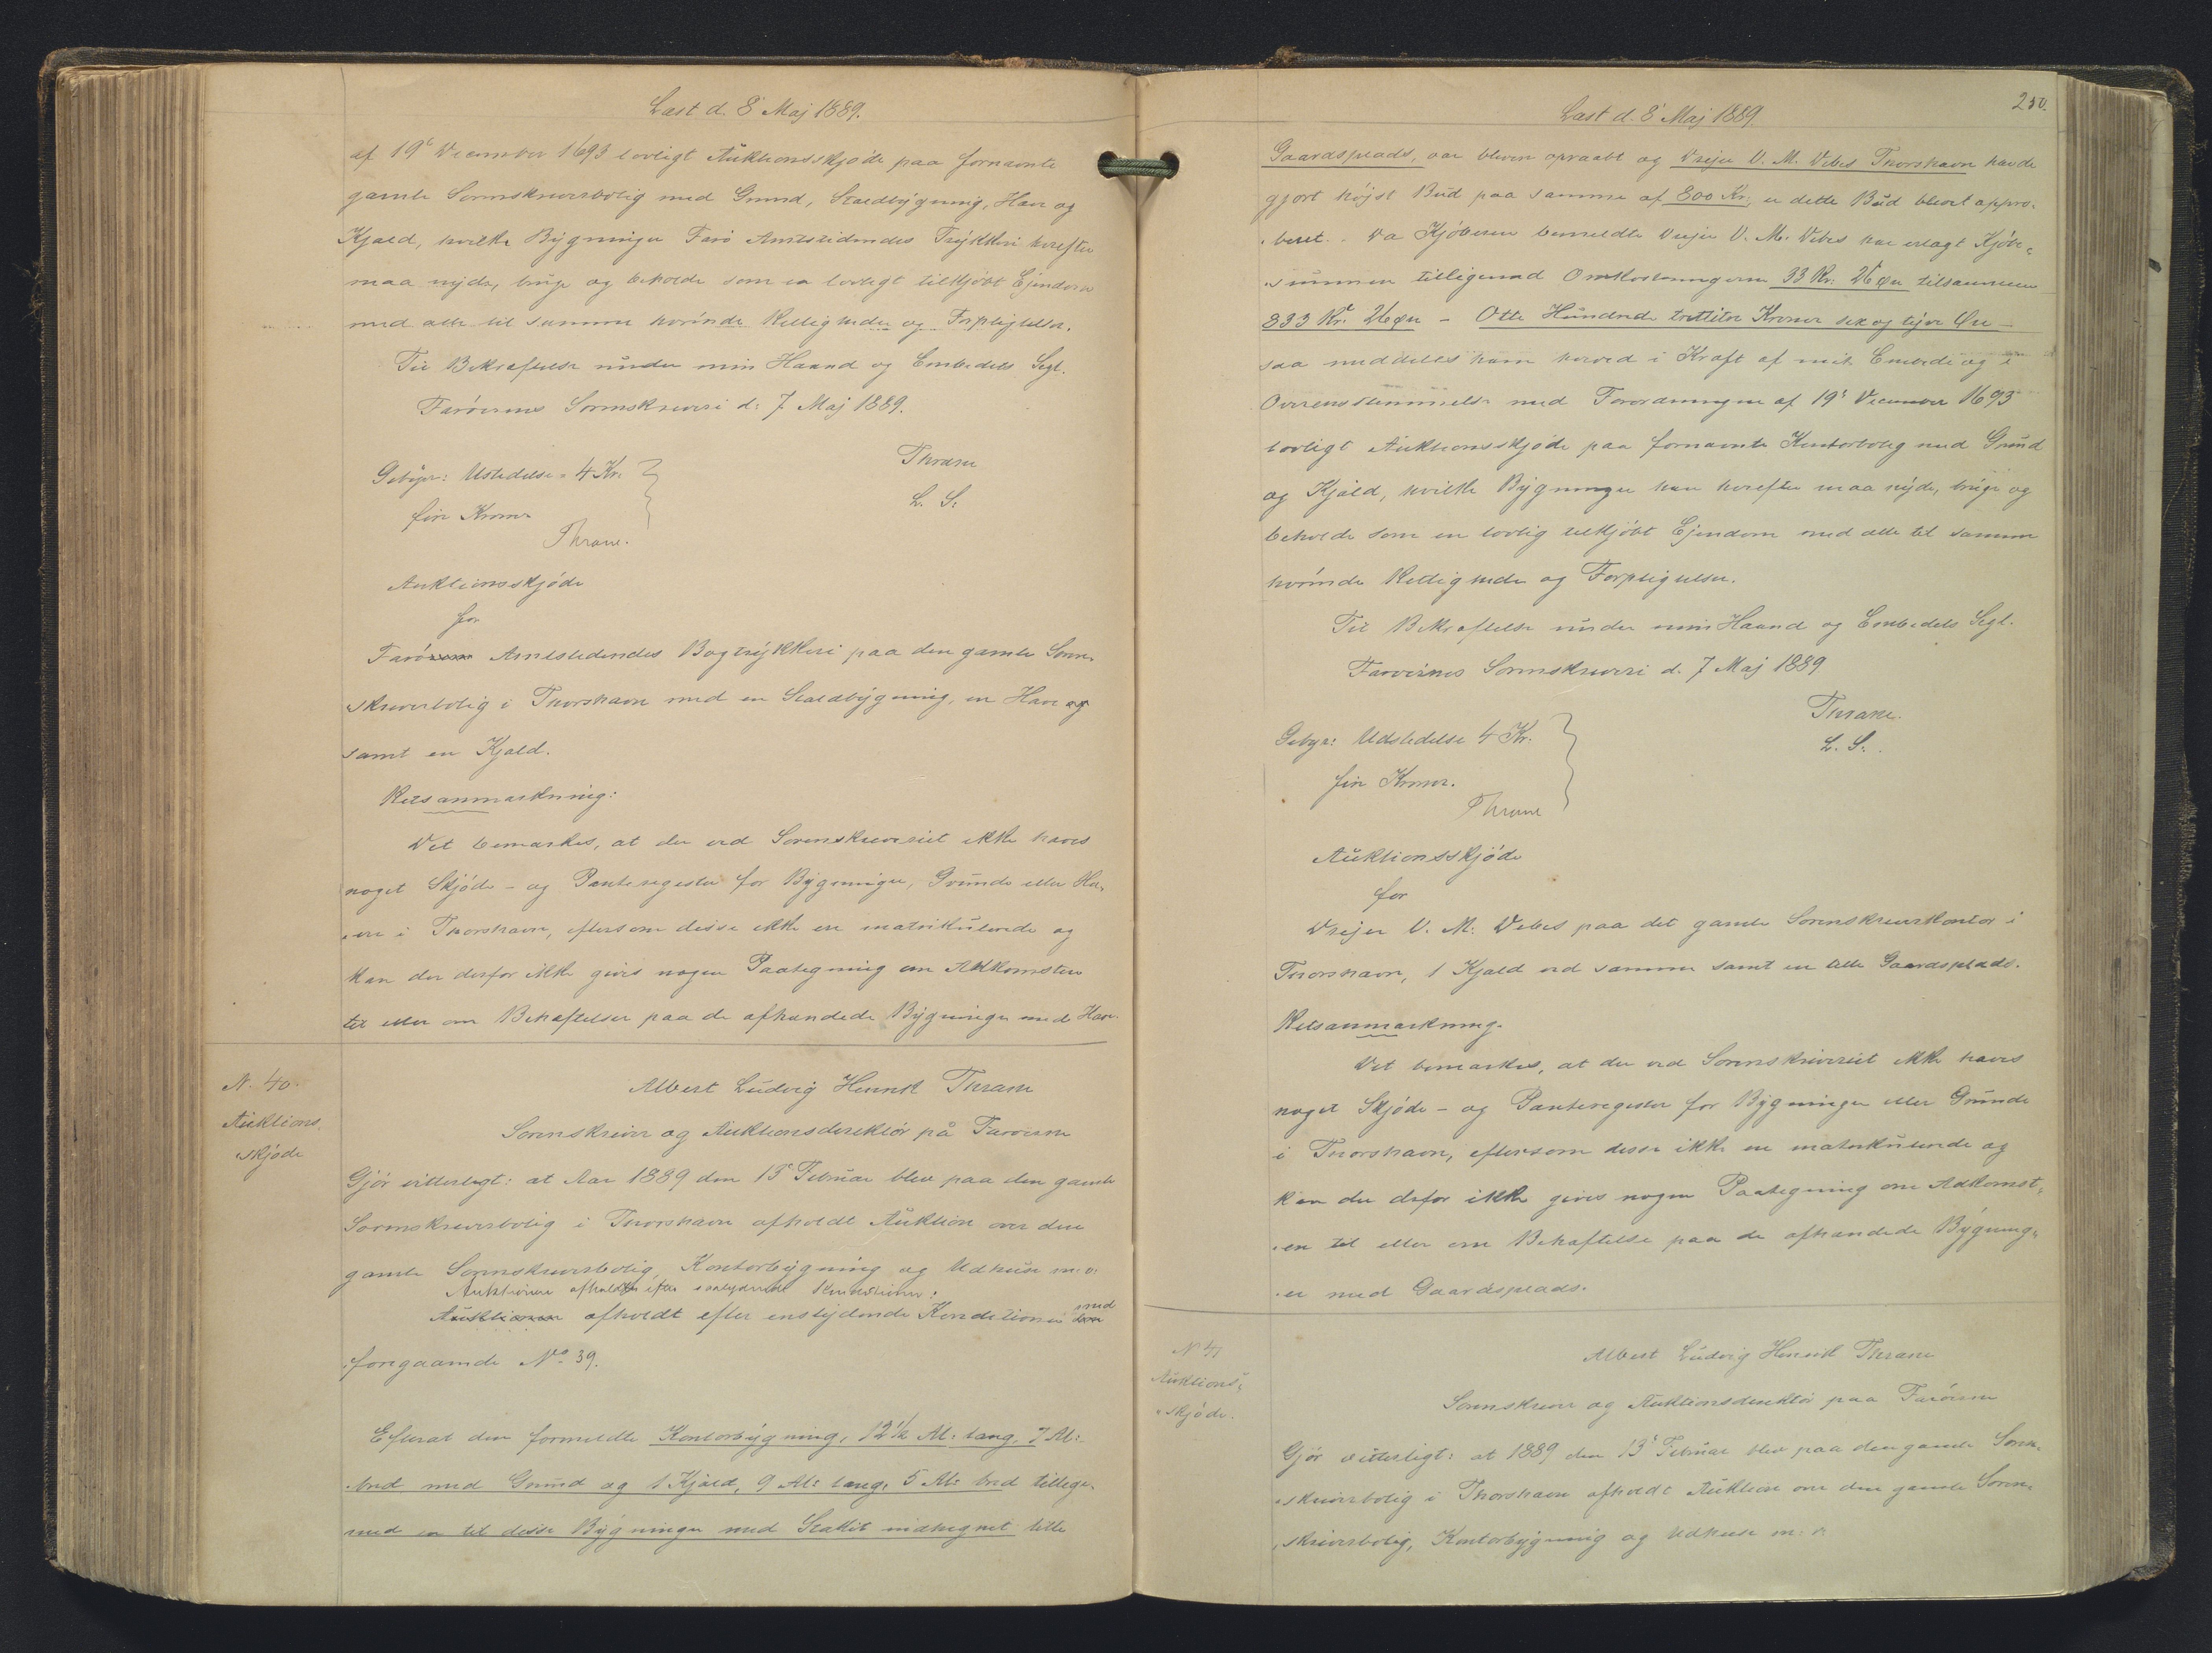 Læst d. 8' Maj 1889.
af 19' December 1693 lovligt Auktionsskjøde paa fornævnte
gamle Sorenskriverbolig med Grund, Staldbygning, Have og
Kjald, hvilke Bygninger Færø Amtstidendes Trykkeri herefter
maa nyde, bruge og beholde som en lovligt tilkjøbt Ejendom
med alle til samme hørende Rettigheder og Forpligtelser.
Til Bekræftelse under min Haand og Embedets Segl.
Færøernes Sorenskriveri d: 7. Maj 1889.
Thrane
L. S.
Gebyr: Udstedelse = 4 Kr.
fire Kroner
Thrane.
Auktionsskjøde
for
Færøernes Amtstidendes Bogtrykkeri paa den gamle Soren-
skriverbolig i Thorshavn med en Staldbygning, en Have og
samt en Kjald.
Retsanmærkning:
Det bemærkes, at der ved Sorenskriveriet ikke haves
noget Skjøde- og Panteregister for Bygninger, Grunde eller Ha-
ver i Thorshavn, eftersom disse ikke ere matrikulerede og
kan der derfor ikke gives nogen Paategning om Adkomsten
til eller om Behæftelser paa de afhændede Bygninger med Have.
N. 40.
Auktions-
skjøde
Albert Ludvig Henrik Thrane
Sorenskriver og Auktionsdirektør på Færøerne
Gjør vitterligt: at Aar 1889 den 13' Februar blev paa den gamle
Sorenskriverbolig i Thorshavn afholdt Auktion over den
gamle Sorenskriverbolig, Kontorbygning og Udhuse m: v:
Auktionen afholdtes efter enslydende Konditioner:
Auktionen afholdt efter enslydende Konditioner med
som
foregaaende No. 39.
Efterat den formeldte Kontorbygning, 12½ Al: lang, 7 Al:
bred med Grund og 1 Kjald, 9 Al: lang, 5 Al: bred tillige-
med en til disse Bygninger med Stakit indhegnet lille
250.
Læst d. 8' Maj 1889.
Gaardsplads, var bleven opraabt og Drejer D. M. Debes Thorshavn havde
gjort højst Bud paa samme af 800 Kr., er dette Bud blevet appro-
beret. Da Kjøberen bemeldte Drejer D. M. Debes har erlagt Kjøbe-
summen tilligemed Omkostningerne 33 Kr. 26 Øre tilsammen
833 Kr. 26 Øre - Otte Hundrede trettitre Kroner sex og tyve Øre -
saa meddeles ham herved i Kraft af mit Embede og i
Overensstemmelse med Forordningen af 19' December 1693
lovligt Auktionsskjøde paa fornævnte Kontorbolig med Grund
og Kjald, hvilke Bygninger han herefter maa nyde, bruge og
beholde som en lovlig tilkjøbt Ejendom med alle til samme
hørende Rettigheder og Forpligtelser.
Til Bekræftelse under min Haand og Embedets Segl.
Færøernes Sorenskriveri d. 7 Maj 1889
Thrane.
L. S.
Gebyr: Udstedelse 4 Kr.
fire Kroner.
Thrane
Auktionsskjøde
for
Drejer D. M. Debes paa det gamle Sorenskriverkontor i
Thorshavn, 1 Kjald ved samme samt en lille Gaardsplads.
Retsanmærkning.
Det bemærkes, at der ved Sorenskriveriet ikke haves
noget Skjøde- og Panteregister for Bygninger eller Grunde
i Thorshavn, eftersom disse ikke ere matrikulerede og
kan der derfor ikke gives nogen Paategning om Adkomst-
en til eller om Behæftelse paa de afhændede Bygning-
er med Gaardsplads.
N. 41
Auktions-
skjøde.
Albert Ludvig Henrik Thrane
Sorenskriver og Auktionsdirektør paa Færøerne
Gjør vitterligt: at 1889 den 13' Februar blev paa den gamle Soren-
skriverbolig i Thorshavn afholdt Auktion over den gamle Soren-
skriverbolig, Kontorbygning og Udhuse m: v: